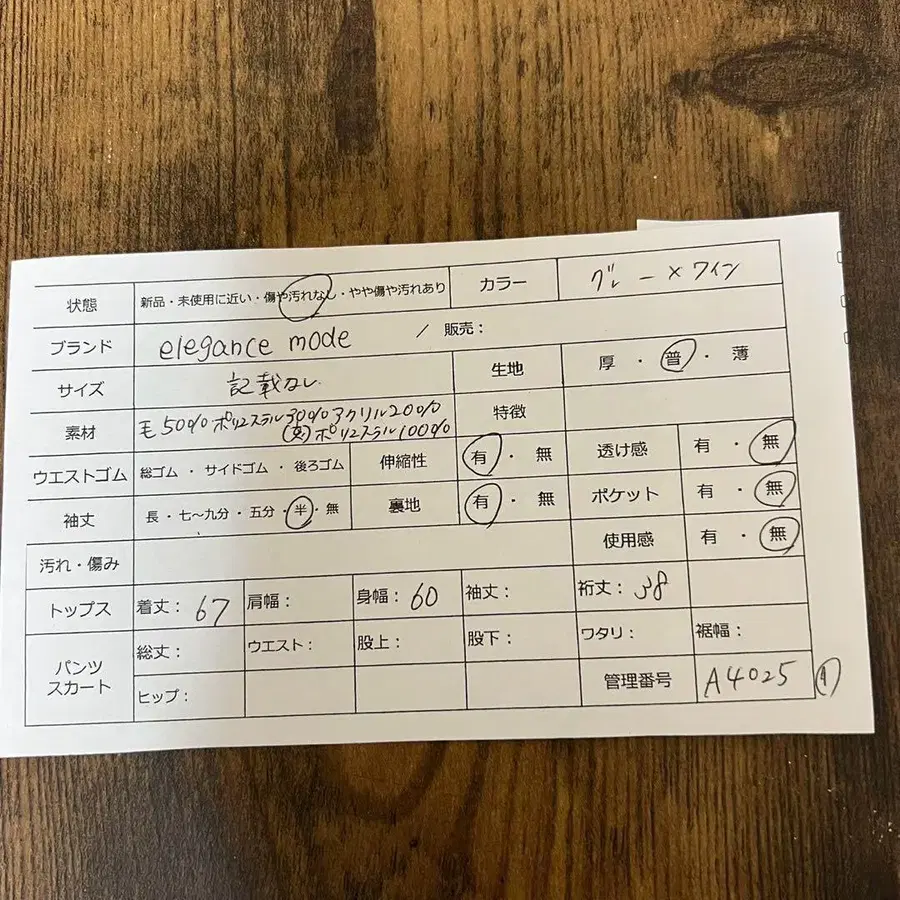 状態 新品・未使用に近い・傷や汚れなし・やや傷や汚れあり カラー グレー×ワイン
ブランド elegance mode / 販売：
サイズ 記載なし 生地 厚・普・薄
素材 毛50% ポリエステル30% アクリル20% 特徴
ポリエステル100%
ウエストゴム 総ゴム・サイドゴム・後ろゴム 伸縮性 有・無 透け感 有・無
袖丈 長・七〜九分・五分・半・無 裏地 有・無 ポケット 有・無
汚れ・傷み 使用感 有・無
トップス 着丈： 67 肩幅： 身幅： 60 袖丈： 裄丈： 38
パンツ スカート 総丈： ウエスト： 股上： 股下： ワタリ： 裾幅：
ヒップ： 管理番号 A4025 A